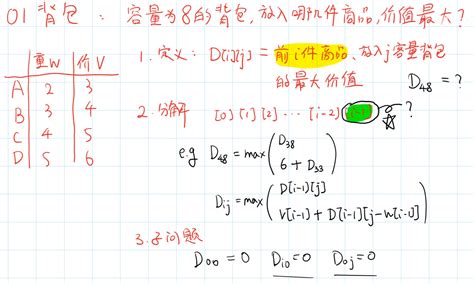 01背包： 容量为8的背包，放入哪几件商品，价值最大？
重W 价V
A 2 3
B 3 4
C 4 5
D 5 6
1. 定义： D[i][j] = 前i件商品、放入j容量背包
的最大价值
D₄₈ = ?
2. 分解 [0] [1] [2] … [i-2] [i-1] ?
e.g D₄₈ = max( D₃₈
6 + D₃₃ )
Dᵢⱼ = max( D[i-1][j]
V[i-1] + D[i-1][j-W[i-1]] )
3. 子问题
D₀₀ = 0 Dᵢ₀ = 0 D₀ⱼ = 0